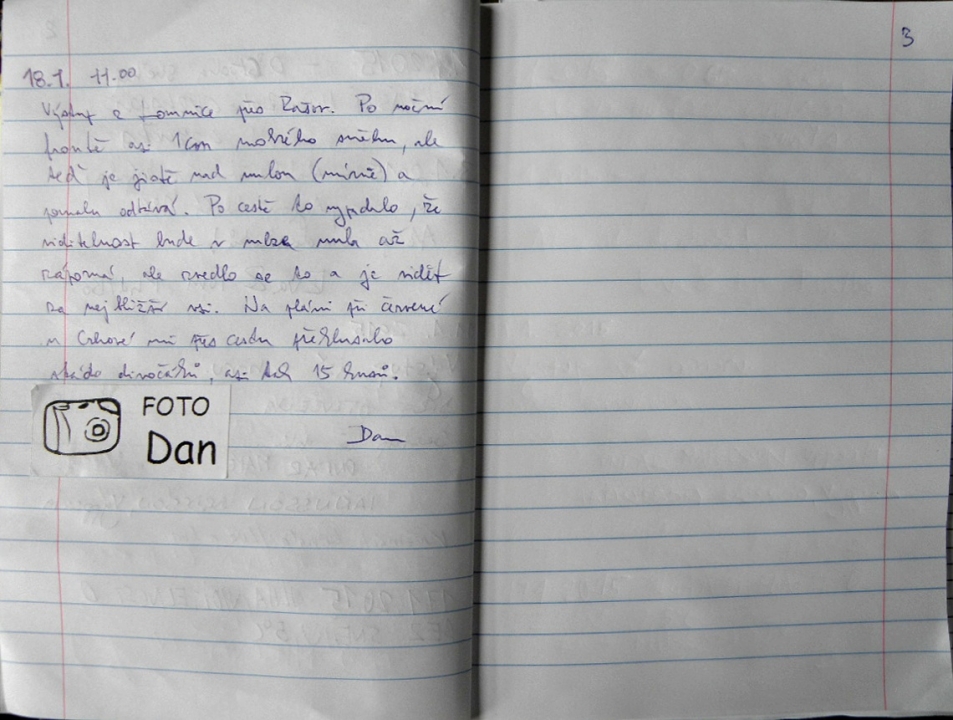 3
18.1. 11.00
Výstup z Lomnice přes Rašov. Po noční
frontě asi 1cm mokrého sněhu, ale
teď je jistě nad nulou (mírně) a
pomalu odtává. Po cestě to vypadalo, že
viditelnost bude v mlze nula až
záporná, ale zvedlo se to a je vidět
za nejbližší vsi. Na pláni při červené
u mi přes cestu přeběhlo
stádo divočáků, asi tak 15 kusů.
FOTO
Dan
Dan